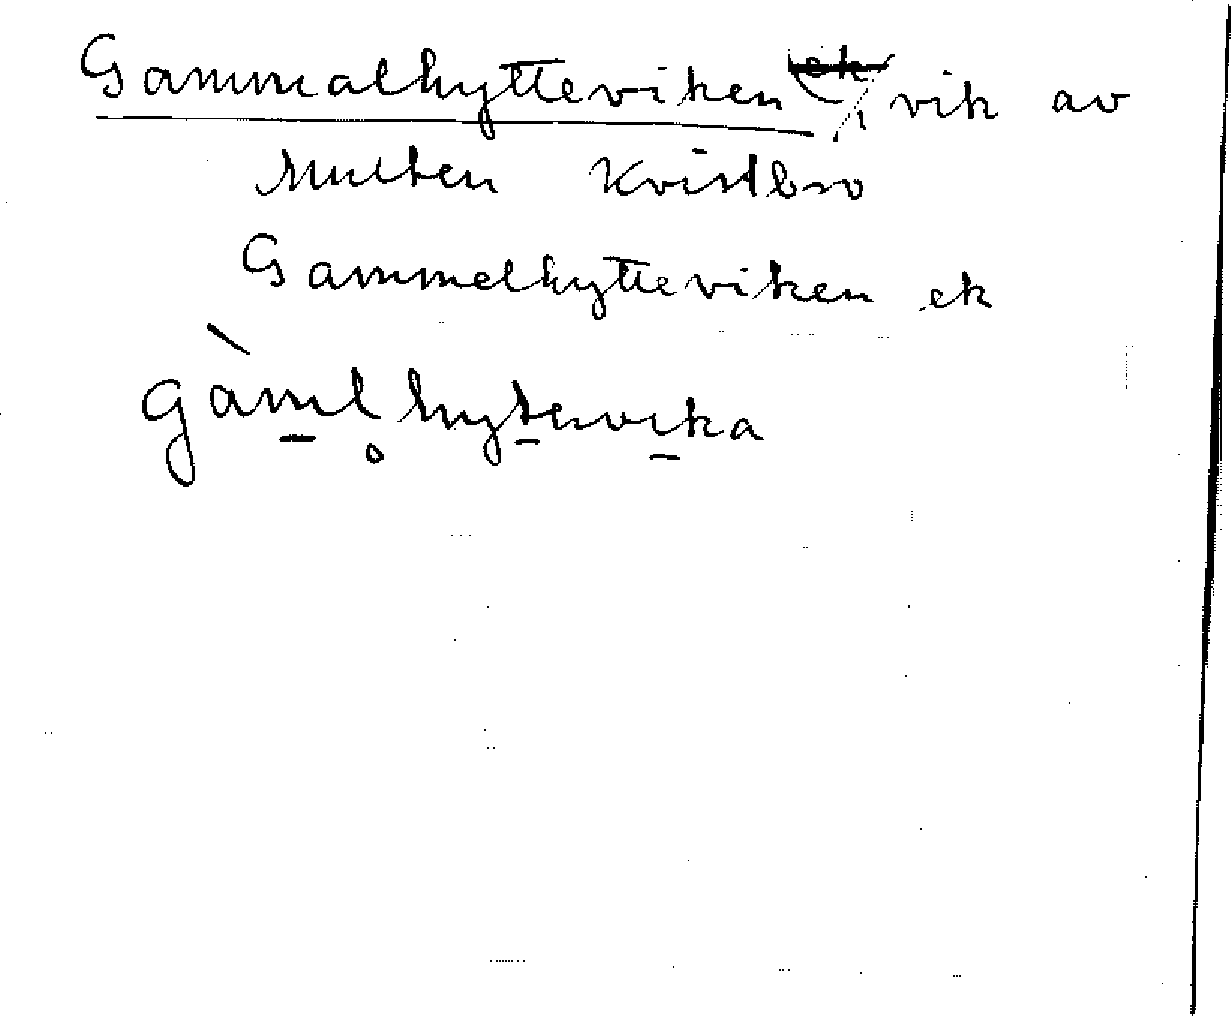 Gammalhytteviken, vik av
Multen Kvistbro
Gammelhytteviken ek
gàml̥hytevika